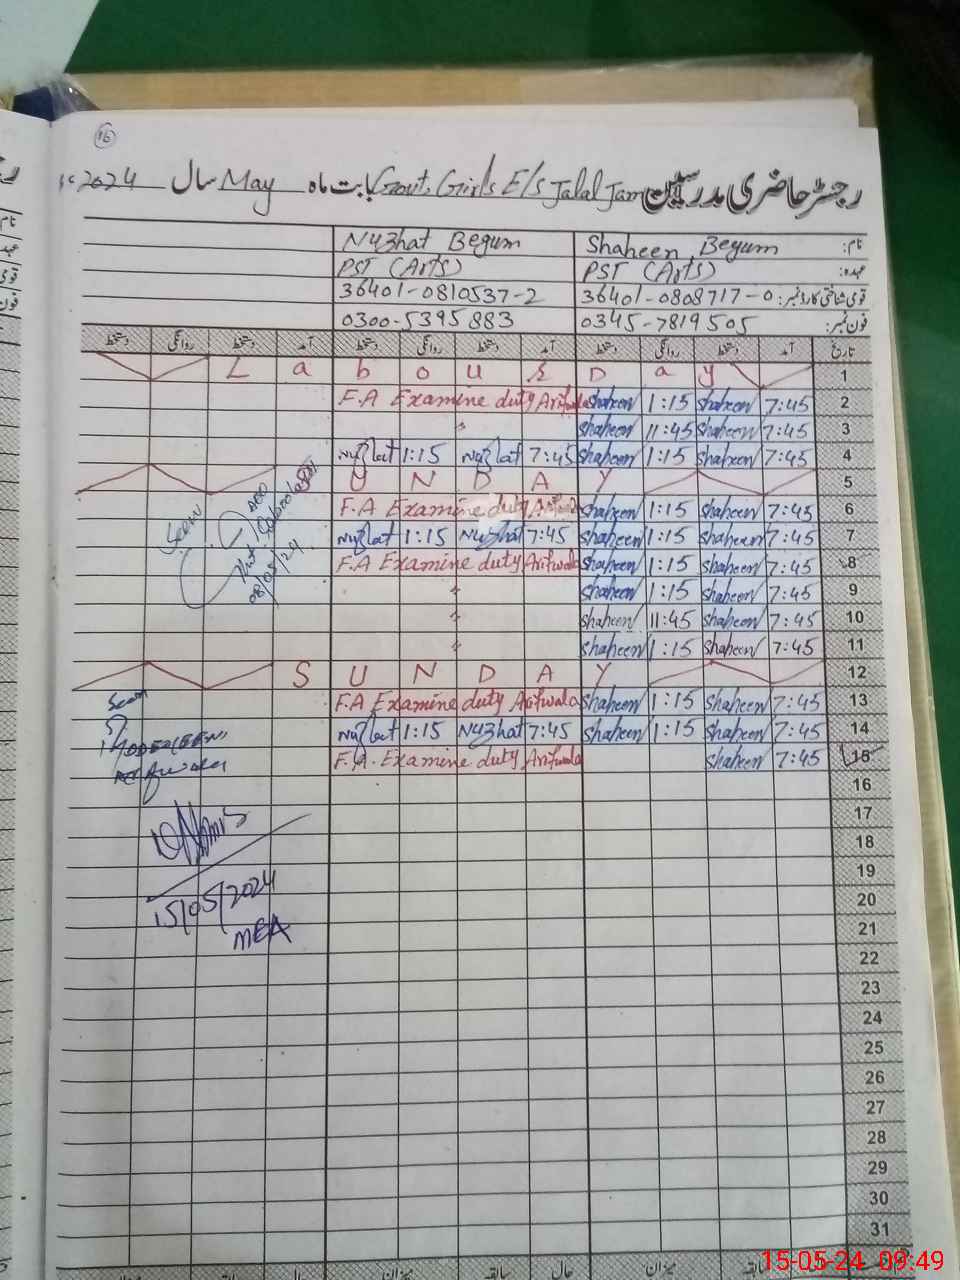 16
رجسٹر حاضری مدرسین Govt. Girls E/s Jalal Jam بابت ماہ May سال 2024
نام: Shaheen Begum Nuzhat Begum
عہدہ: PST (Arts) PST (Arts)
قومی شناختی کارڈ نمبر: 36401-0808717-0 36401-0810537-2
فون نمبر: 0345-7819505 0300-5395883
تاریخ آمد دستخط روانگی دستخط آمد دستخط روانگی دستخط آمد دستخط روانگی دستخط
L a b o u r D a y 1
F.A Examine duty Arifwala shaheen 1:15 shaheen 7:45 2
〃 shaheen 11:45 shaheen 7:45 3
Nuzhat 1:15 Nuzhat 7:45 shaheen 1:15 shaheen 7:45 4
U N D A Y 5
F.A Examine duty shaheen 1:15 shaheen 7:45 6
Nuzhat 1:15 Nuzhat 7:45 shaheen 1:15 shaheen 7:45 7
F.A Examine duty Arifwala shaheen 1:15 shaheen 7:45 8
〃 shaheen 1:15 shaheen 7:45 9
〃 shaheen 11:45 shaheen 7:45 10
〃 shaheen 1:15 shaheen 7:45 11
S U N D A Y 12
F.A Examine duty Arifwala shaheen 1:15 shaheen 7:45 13
Nuzhat 1:15 Nuzhat 7:45 shaheen 1:15 shaheen 7:45 14
F.A. Examine duty Arifwala shaheen 7:45 15
Seen
08/05/24
Seen
15/05/2024
MEA
16
17
18
19
20
21
22
23
24
25
26
27
28
29
30
31
میزان سابقہ حال میزان سابقہ
15-05-24 09:49